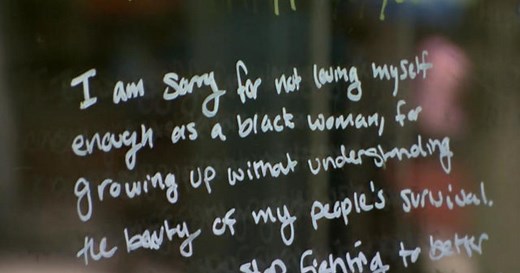 I am sorry for not loving myself
enough as a black woman, for
growing up without understanding
the beauty of my people's survival.
stop fighting to better